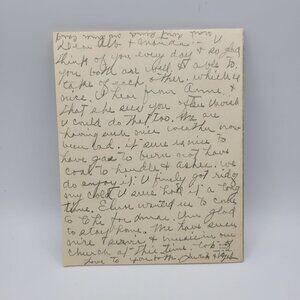 Dear Alb &
think of you every day & so glad
you both are well & able to
take of each other which is
nice. I hear from Anne &
that she sees you often I wish
I could do that too. We are
having such nice weather now
been bad. it sure is nice to
have gas to burn & not have
coal to handle & ashes. We
do enjoy it. I finely got rid of
my cold I sure had it a long
time. Elsie wanted us to come
to the for dinner. Am glad
to stay home. We have such
nice & music in our
church at this time.
Love to you both.